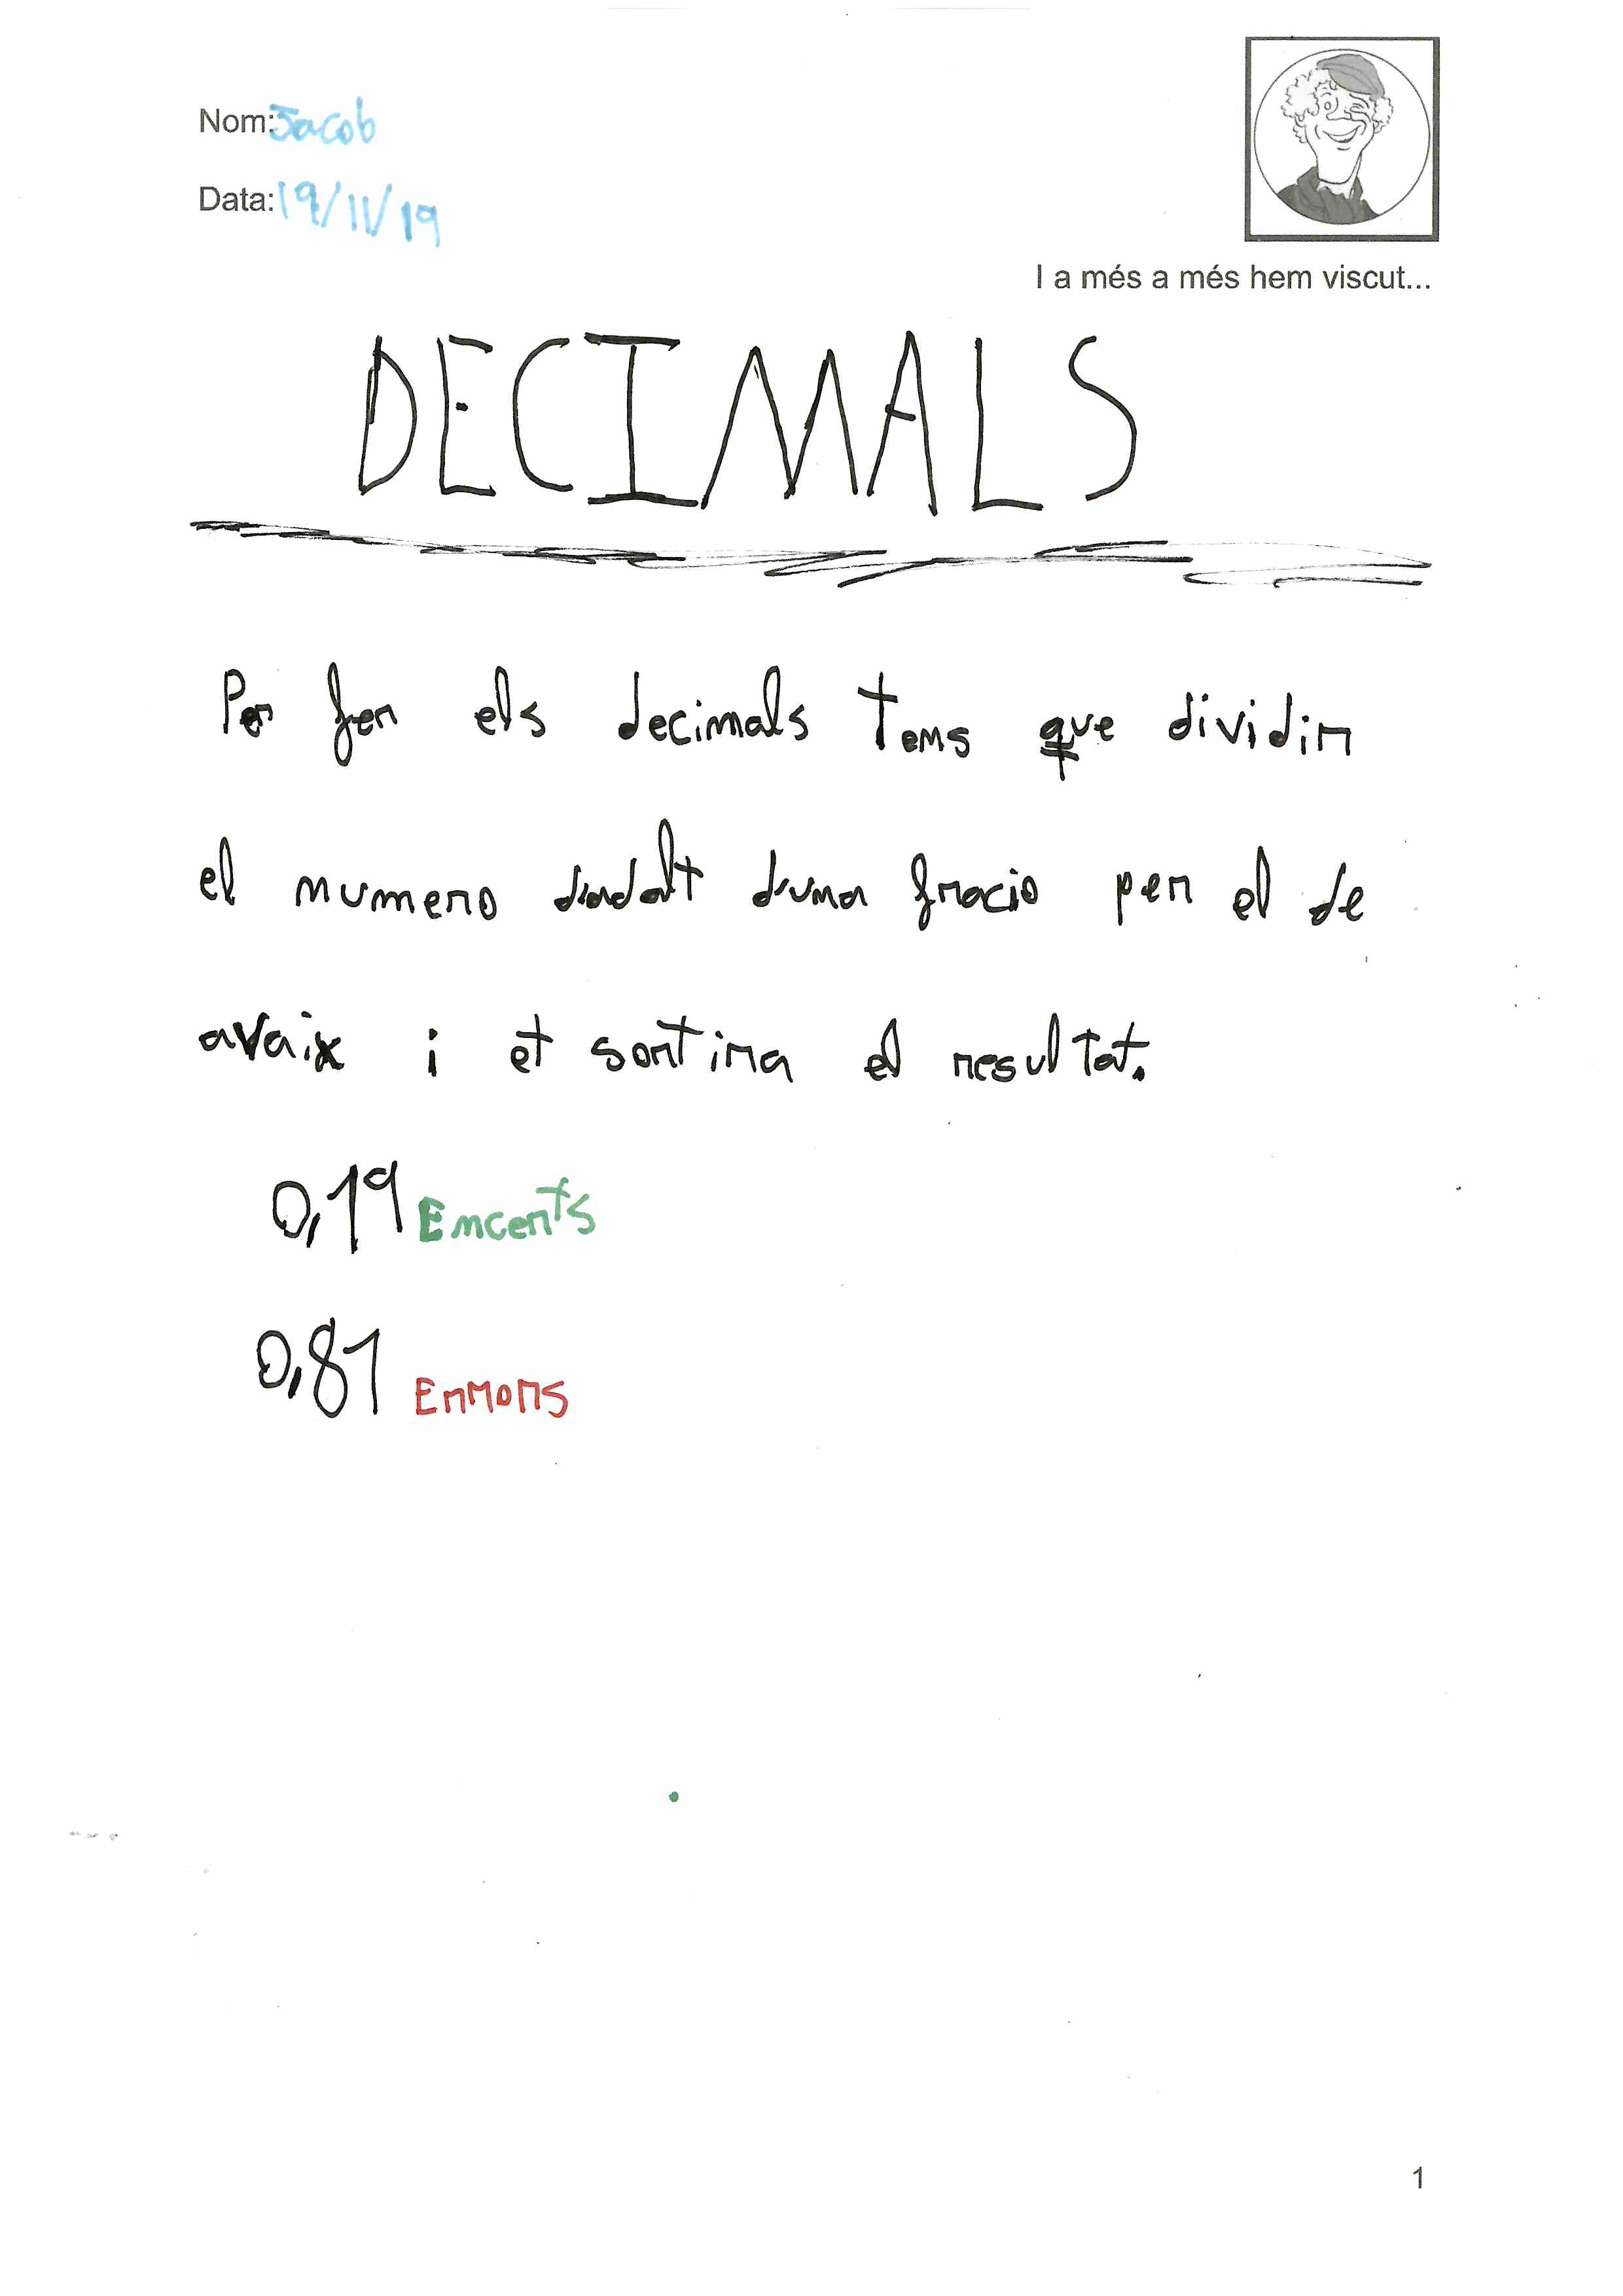 Nom: Jacob
Data: 19/11/19
I a més a més hem viscut...
DECIMALS
Per fer els decimals tens que dividir
el numero dadalt d'una fracio per el de
avaix i et sortira el resultat.
0,19 Encerts
0,81 Errors
1